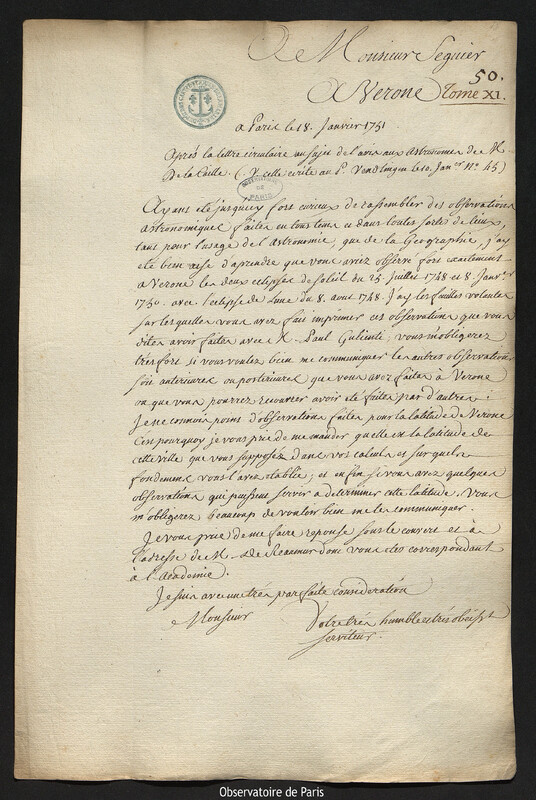 A Monsieur Seguier
50.
A Verone Tome XI.
a Paris le 18. Janvier 1751
Après la lettre circulaire au sujet de l'avis aux Astronomes de M.
De la Caille. (V. celle ecrite au P. Vendlingen le 10. Janer. N.o 45)
OBSERVATOIRE DE PARIS
Ayant eté jusqu'icy fort curieux de rassembler des observations
astronomiques faites en tous tems et dans toutes sortes de lieux,
tant pour l'usage de l'Astronomie, que de la Geographie, j'ay
eté bien aise d'aprendre que vous aviez observé fort exactement
a Verone les deux eclipses de soleil du 25. Juillet 1748 et 8. Janvr
1750. avec l'eclipse de Lune du 8. aout 1748. J'ay les feuilles volantes
sur lesquelles vous avez fait imprimer ces observations que vous
dites avoir faites avec M. Paul Gulienti; vous m'obligerez
tres fort si vous voulez bien me communiquer les autres observations
soit anterieures ou posterieures que vous avez faites à Verone
ou que vous pourrez recouvrer avoir eté faites par d'autres:
Je ne connois point d'observations faites pour la latitude de Verone
C'est pourquoy je vous prie de me mander quelle est la latitude de
cette ville que vous supposez dans vos calculs et sur quels
fondemens vous l'avez etablie; et enfin si vous avez quelques
observations qui puissent servir a determiner cette latitude. Vous
m'obligerez beaucoup de vouloir bien me les communiquer.
Je vous prie de me faire reponse sous le couvert et à
l'adresse de M. De Reaumur dont vous etes correspondant
à l'Academie.
Je suis avec une très parfaite consideration
Monsieur Votre très humble et très obeisst
serviteur.
Observatoire de Paris